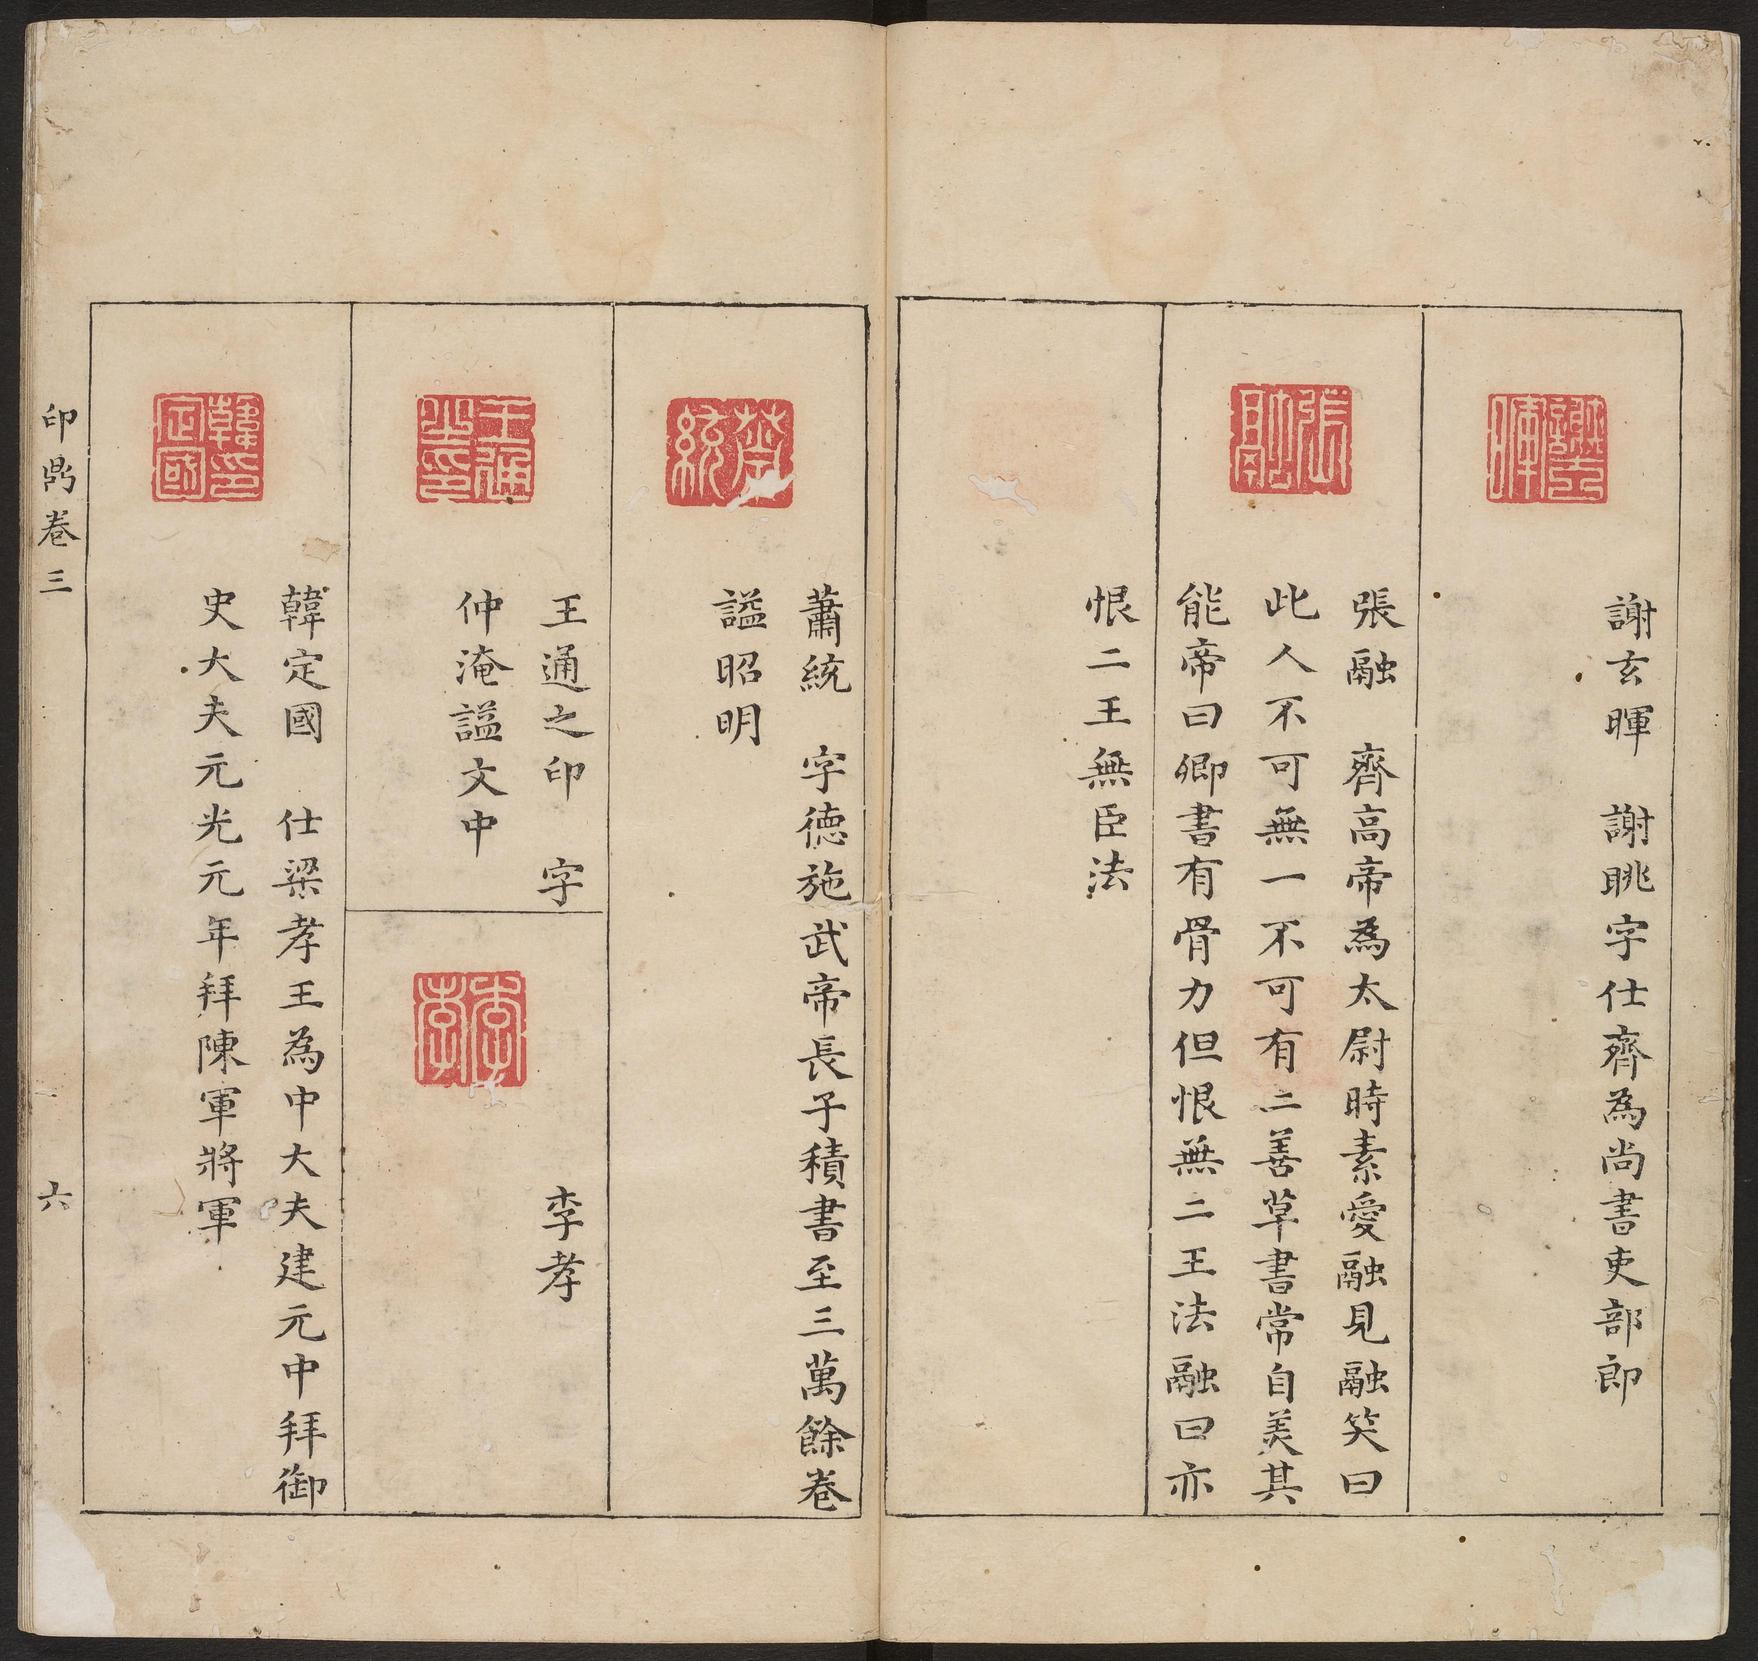 謝玄暉　謝眺字仕齊為尚書吏部郎
張融　齊高帝為太尉時素愛融見融笑曰
此人不可無一不可有二善草書常自美其
能帝曰卿書有骨力但恨無二王法融曰亦
恨二王無臣法
蕭統　字德施武帝長子積書至三萬餘卷
謚昭明
王通之印　字
仲淹謚文中
李孝
韓定國　仕梁孝王為中大夫建元中拜御
史大夫元光元年拜陳軍將軍
印鼎卷三
六
謝玄暉
張融
蕭統
王通之印
韓印定國